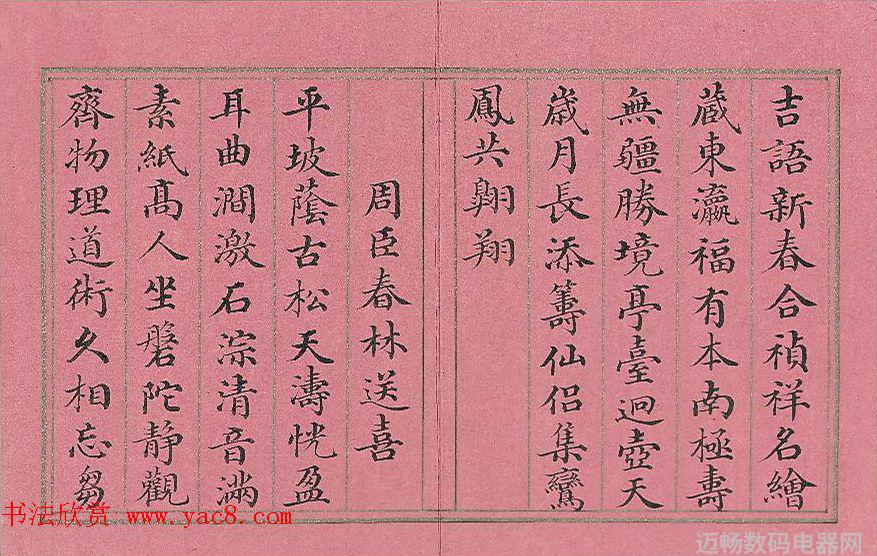 吉語新春合禎祥名繪
蔵東瀛福有本南極壽
無疆勝境亭臺迴壺天
歲月長添籌仙侶集鸞
鳳共翺翔
周臣春林送喜
平坡蔭古松天濤恍盈
耳曲澗激石淙清音滿
素紙高人坐磐陀靜觀
齊物理道術久相忘芻
书法欣赏 www.yac8.com
迈畅数码电器网